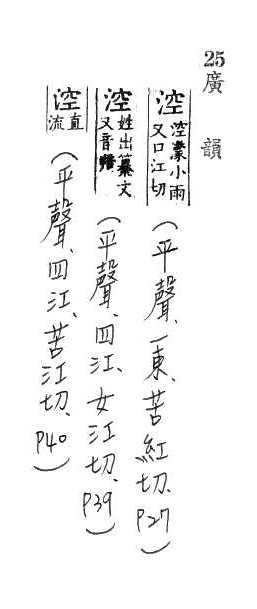 25廣韻
涳涳濛小雨又口江切(平聲、一東、苦紅切、P27)
涳姓出纂文又音(平聲、四江、女江切、P39)
涳直流(平聲、四江、苦江切、P40)